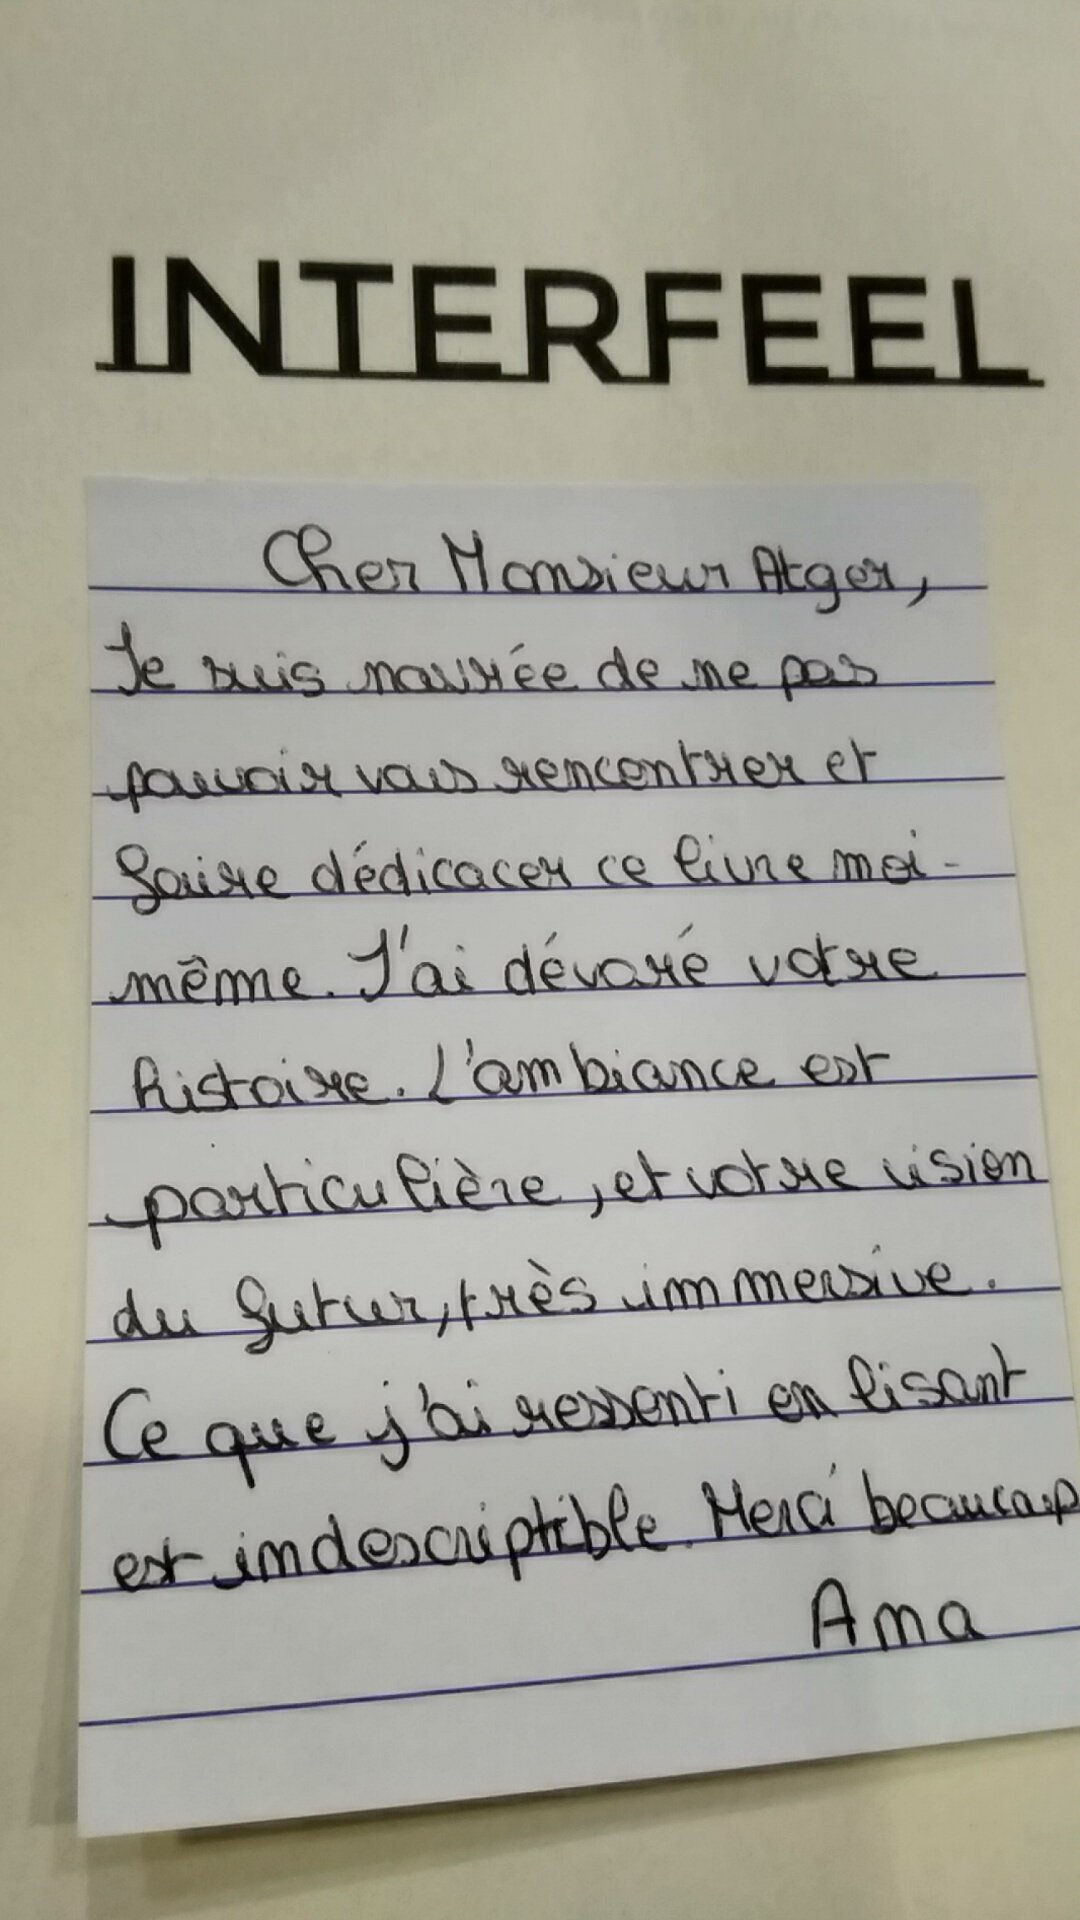 INTERFEEL
Cher Monsieur Atger,
Je suis navrée de ne pas
pouvoir vous rencontrer et
faire dédicacer ce livre moi-
même. J'ai dévoré votre
histoire. L'ambiance est
particulière, et votre vision
du futur, très immersive.
Ce que j'ai ressenti en lisant
est indescriptible. Merci beaucoup
Ama